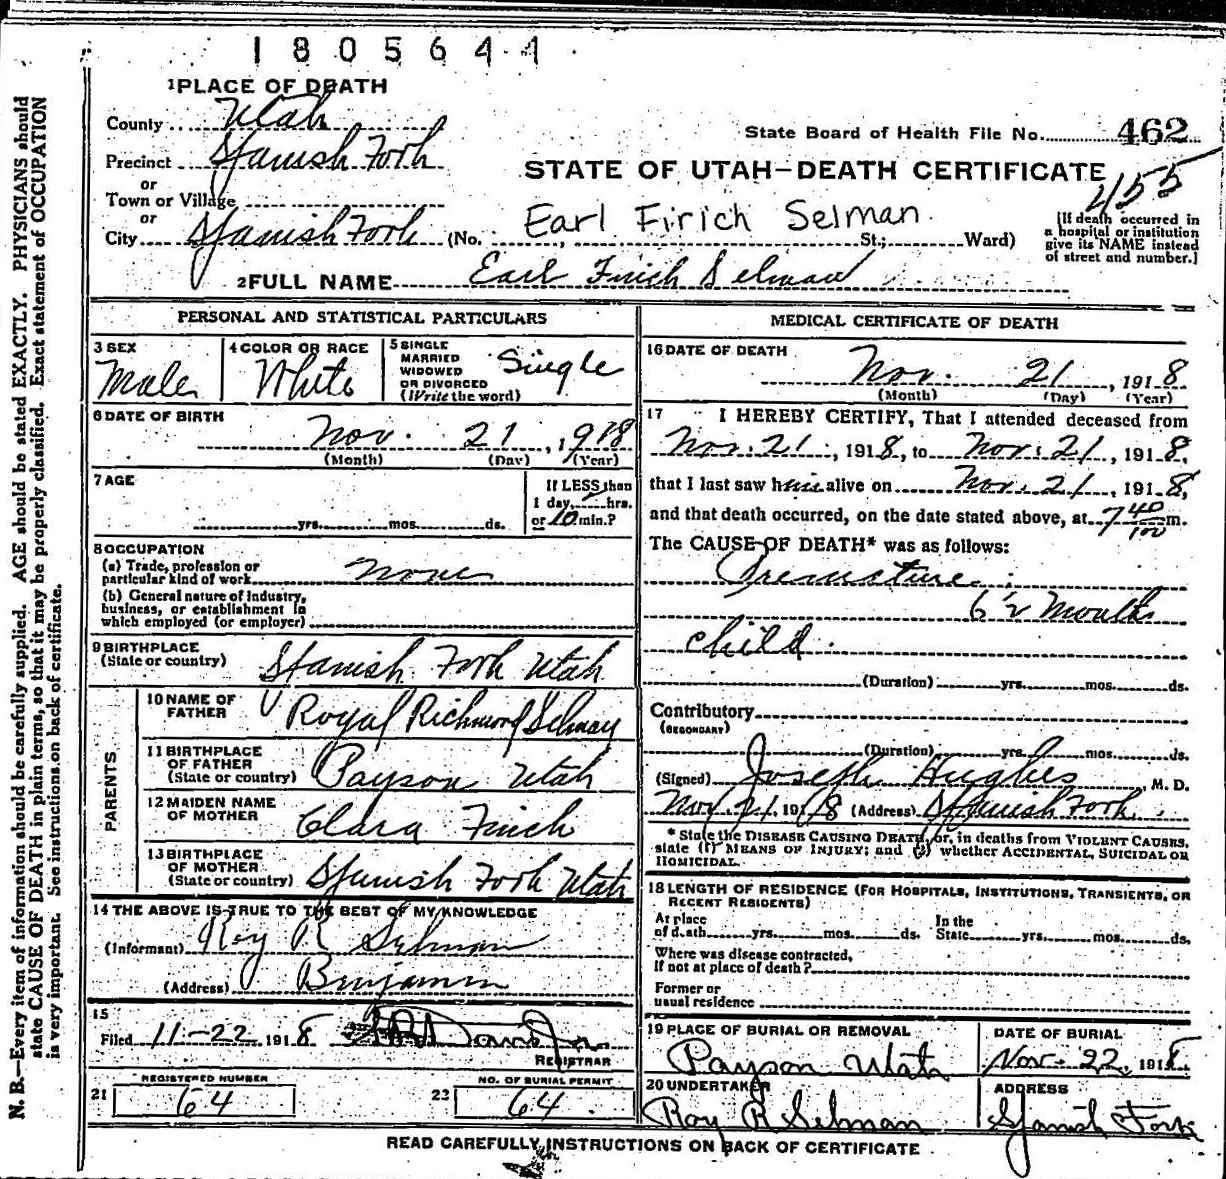 1805644
1 PLACE OF DEATH
County Utah
State Board of Health File No. 462
Precinct Spanish Fork
STATE OF UTAH—DEATH CERTIFICATE
455
or
Town or Village
or
City Spanish Fork (No. St.; Ward)
Earl Firich Selman
[If death occurred in
a hospital or institution
give its NAME instead
of street and number.]
2 FULL NAME Earl Finch Selman
PERSONAL AND STATISTICAL PARTICULARS
3 SEX
Male
4 COLOR OR RACE
White
5 SINGLE
MARRIED
WIDOWED
OR DIVORCED
(Write the word)
Single
6 DATE OF BIRTH
Nov. 21, 1918
(Month) (Day) (Year)
7 AGE
yrs. mos. ds.
If LESS than
1 day, hrs.
or 10 min.?
8 OCCUPATION
(a) Trade, profession or
particular kind of work None
(b) General nature of industry,
business, or establishment in
which employed (or employer)
9 BIRTHPLACE
(State or country) Spanish Fork Utah
PARENTS
10 NAME OF
FATHER Royal Richmond Selman
11 BIRTHPLACE
OF FATHER
(State or country) Payson Utah
12 MAIDEN NAME
OF MOTHER Clara Finch
13 BIRTHPLACE
OF MOTHER
(State or country) Spanish Fork Utah
14 THE ABOVE IS TRUE TO THE BEST OF MY KNOWLEDGE
(Informant) Roy R Selman
(Address) Benjamin
15
Filed 11-22 1918
REGISTRAR
REGISTERED NUMBER
21 64
NO. OF BURIAL PERMIT
22 64
MEDICAL CERTIFICATE OF DEATH
16 DATE OF DEATH
Nov. 21, 1918
(Month) (Day) (Year)
17 I HEREBY CERTIFY, That I attended deceased from
Nov. 21, 1918, to Nov. 21, 1918,
that I last saw him alive on Nov. 21, 1918,
and that death occurred, on the date stated above, at 7 40/100 m.
The CAUSE OF DEATH* was as follows:
Premature
6 1/2 Months
child.
(Duration) yrs. mos. ds.
Contributory
(SECONDARY)
(Duration) yrs. mos. ds.
(Signed) Joseph Hughes, M. D.
Nov 21 1918 (Address) Spanish Fork.
* State the DISEASE CAUSING DEATH, or, in deaths from VIOLENT CAUSES,
state (1) MEANS OF INJURY; and (2) whether ACCIDENTAL, SUICIDAL OR
HOMICIDAL.
18 LENGTH OF RESIDENCE (FOR HOSPITALS, INSTITUTIONS, TRANSIENTS, OR
RECENT RESIDENTS)
At place
of death yrs. mos. ds.
In the
State yrs. mos. ds.
Where was disease contracted,
if not at place of death?
Former or
usual residence
19 PLACE OF BURIAL OR REMOVAL
Payson Utah
DATE OF BURIAL
Nov. 22, 1918
20 UNDERTAKER
Roy R Selman
ADDRESS
Spanish Fork
READ CAREFULLY INSTRUCTIONS ON BACK OF CERTIFICATE
N. B.—Every item of information should be carefully supplied. AGE should be stated EXACTLY. PHYSICIANS should
state CAUSE OF DEATH in plain terms, so that it may be properly classified. Exact statement of OCCUPATION
is very important. See instructions on back of certificate.